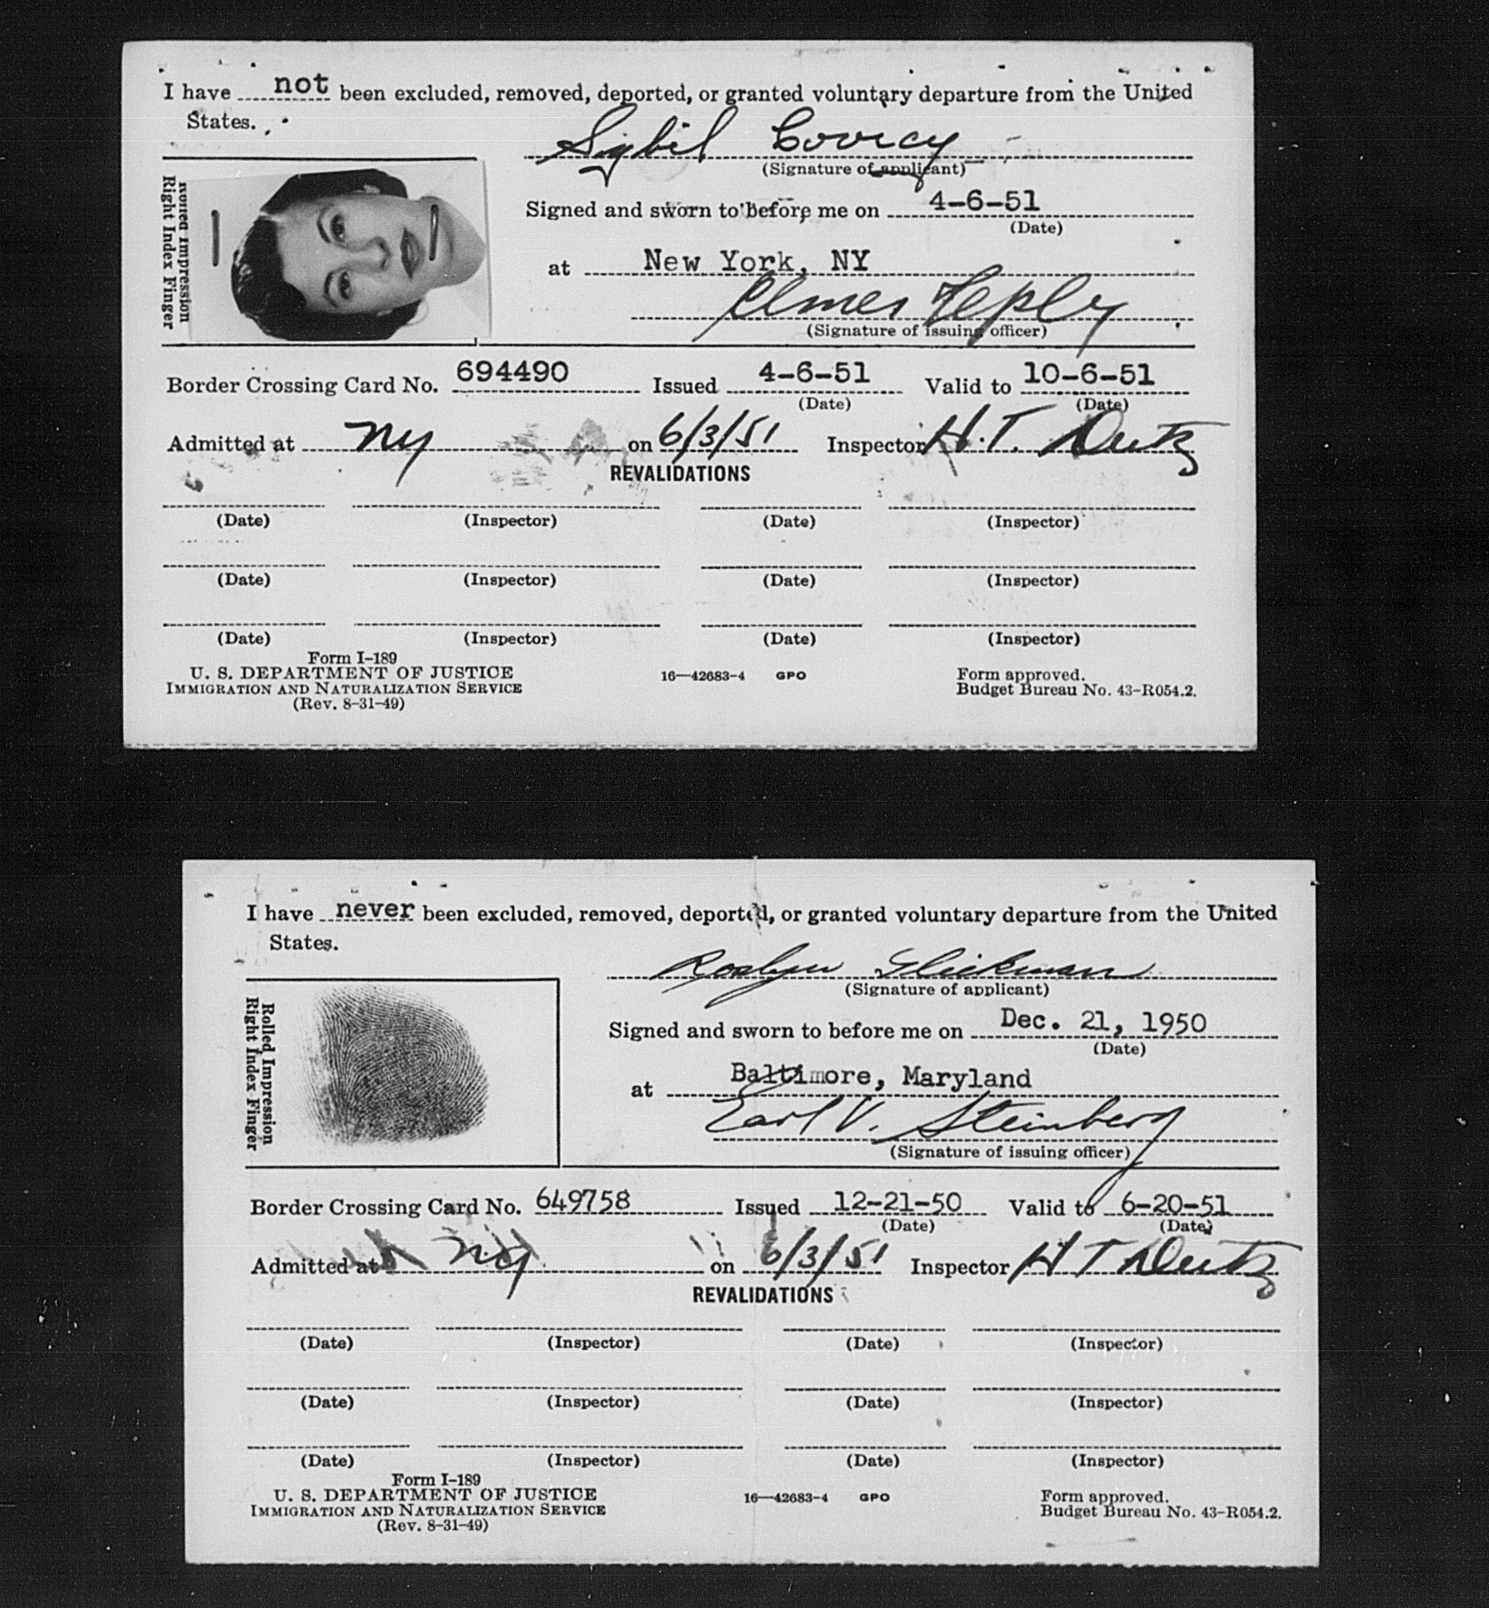 I have not been excluded, removed, deported, or granted voluntary departure from the United
States.
Sybil
(Signature of applicant)
Rolled Impression
Right Index Finger
Signed and sworn to before me on 4-6-51
(Date)
at New York, NY
Elmer
(Signature of issuing officer)
Border Crossing Card No. 694490 Issued 4-6-51 Valid to 10-6-51
(Date) (Date)
Admitted at NY on 6/3/51 Inspector H. T. Deutz
REVALIDATIONS
(Date) (Inspector) (Date) (Inspector)
(Date) (Inspector) (Date) (Inspector)
(Date) (Inspector) (Date) (Inspector)
Form I-189
U. S. DEPARTMENT OF JUSTICE
IMMIGRATION AND NATURALIZATION SERVICE
(Rev. 8-31-49)
16—42683-4 GPO
Form approved.
Budget Bureau No. 43-R054.2.
I have never been excluded, removed, deported, or granted voluntary departure from the United
States.
Roslyn Glickman
(Signature of applicant)
Rolled Impression
Right Index Finger
Signed and sworn to before me on Dec. 21, 1950
(Date)
at Baltimore, Maryland
Earl V. Steinberg
(Signature of issuing officer)
Border Crossing Card No. 649758 Issued 12-21-50 Valid to 6-20-51
(Date) (Date)
Admitted at NY on 6/3/51 Inspector H T Deutz
REVALIDATIONS
(Date) (Inspector) (Date) (Inspector)
(Date) (Inspector) (Date) (Inspector)
(Date) (Inspector) (Date) (Inspector)
Form I-189
U. S. DEPARTMENT OF JUSTICE
IMMIGRATION AND NATURALIZATION SERVICE
(Rev. 8-31-49)
16—42683-4 GPO
Form approved.
Budget Bureau No. 43-R054.2.